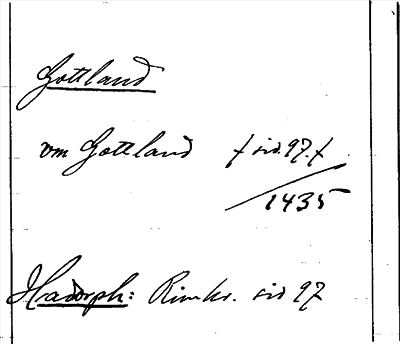 Gottland
om Gottland f sid. 97. f
1435
Hadorph: Rimkr. sid 97